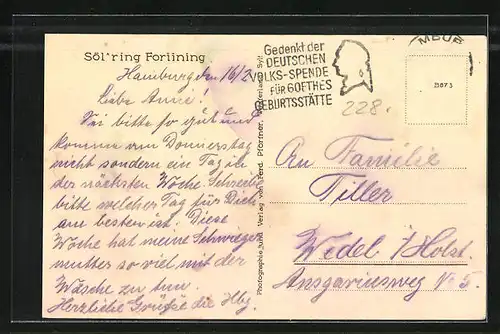 Söl'ring Foriining
Gedenkt der
DEUTSCHEN
VOLKS-SPENDE
FÜR GOETHES
GEBURTSSTÄTTE
MBUR
228.
Hamburg den 16/2
Liebe Anni!
Sei bitte so gut und
komme am Donnerstag
nicht sondern ein Tag in
der nächsten Woche. Schreibe
bitte welcher Tag für Dich
am besten ist. Diese
Woche hat meine Schwieger
mutter so viel mit der
Wäsche zu tun.
Herzliche Grüße die Hbg.
Photographie und Verlag von Ferd. Pförtner, Westerland, Sylt
An Familie
Tiller
Wedel i/Holst.
Ansgariusweg No 5.